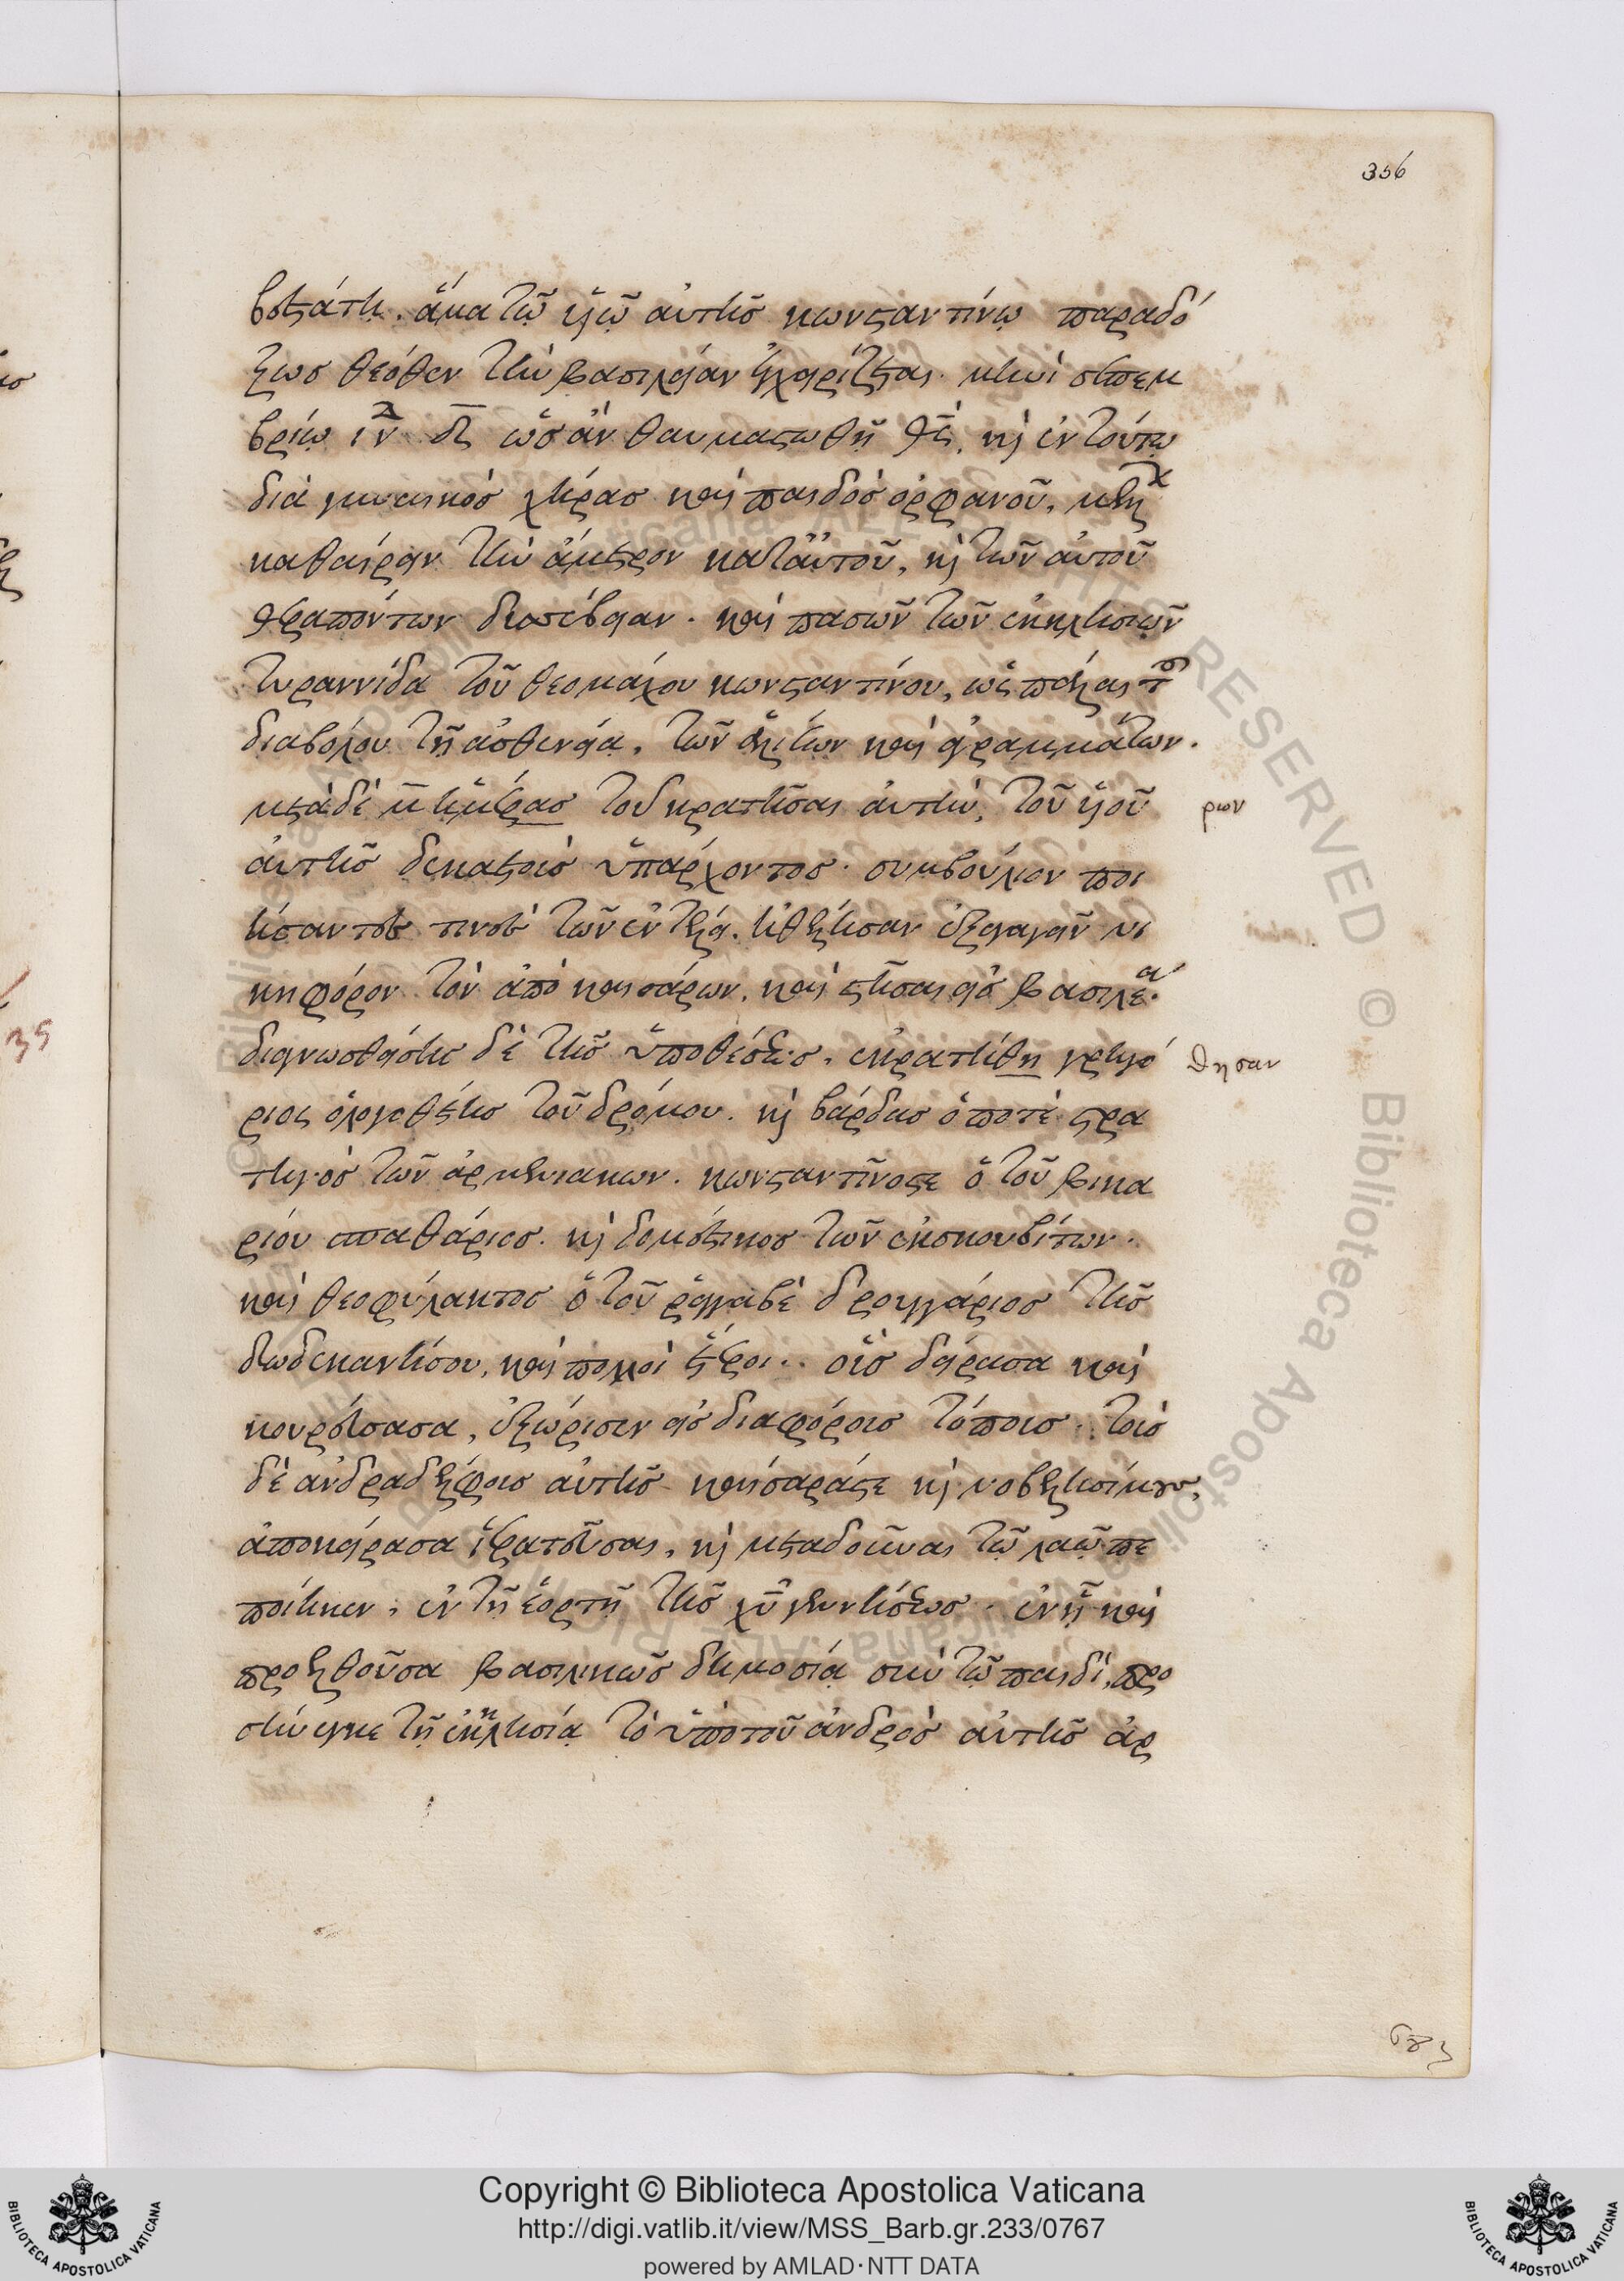 356
βεστάτη. ἅμα τῷ υἱῷ αὐτῆς κωνσταντίνῳ παραδό
ξως θεόθεν τὴν βασιλείαν ἐγχειρίζεται. μηνὶ σεπτεμ
βρίῳ ἰνδ δ ὡς ἂν θαυμαστωθῇ θς, κὶ ἐν τούτῳ
διὰ γυναικὸς χήρας καὶ παιδὸς ὀρφανοῦ, μελ
καθαίρειν τὴν ἄμετρον κατ᾽ αὐτοῦ, κὶ τῶν αὐτοῦ
θεραπόντων δυσσέβειαν. καὶ πασῶν τῶν ἐκκλησιῶν
τυραννίδα τοῦ θεομάχου κωνσταντίνου, ὡς πάλαι τ
διαβόλου τῇ ἀσθενείᾳ, τῶν ἁλιέων καὶ ἀγραμμάτων.
μετὰ δὲ μ ἡμέρας τοῦ κρατῆσαι αὐτὴν, τοῦ υἱοῦ
ρων
αὐτῆς δεκαετοῦς ὑπάρχοντος. συμβούλιον ποι
ήσαντες τινὲς τῶν ἐν τέλει. ἠθέλησαν ἐξαγαγεῖν νι
κηφόρον τὸν ἀπὸ καισάρων, καὶ στῆσαι εἰς βασιλέα.
διαγνωσθείσης δὲ τῆς ὑποθέσεως, ἐκρατήθη γρηγό
θησαν
ριος ὁ λογοθέτης τοῦ δρόμου. κὶ βάρδας ὁ ποτὲ στρα
τηγὸς τῶν ἀρμενιακων. κωνσταντῖνος τε ὁ τοῦ βικα
ρίου σπαθάριος. κὶ δομέστικος τῶν ἐκσκουβίτων.
καὶ θεοφύλακτος ὁ τοῦ ῥαγγαβὲ δρουγγάριος τῆς
δωδεκανήσου, καὶ πολλοὶ ἕτεροι. οὓς δείρασα καὶ
κουρεύσασα, ἐξώρισεν εἰς διαφόροις τόποις. τοῖς
δὲ ἀνδραδέλφοις αὐτῆς καίσαράς τε κὶ νοβελησίμους,
ἀποκείρασα ἱερατεῦσαι, κὶ μεταδοῦναι τῷ λαῷ πε
ποίηκεν, ἐν τῇ ἑορτῇ τῆς χῦ γεννήσεως. ἐν ᾗ καὶ
προελθοῦσα βασιλικῶς δημοσίᾳ σὺν τῷ παιδὶ, προ
σήνεγκε τῇ ἐκκλησίᾳ τὸ ὑπὸ τοῦ ἀνδρὸς αὐτῆς ἀρ
Copyright © Biblioteca Apostolica Vaticana
http://digi.vatlib.it/view/MSS_Barb.gr.233/0767
powered by AMLAD·NTT DATA